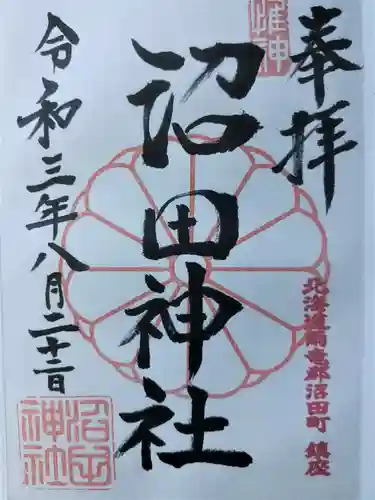 奉拝
惟神
北海道雨竜郡沼田町 鎮座
沼田神社
令和三年八月二十二日
沼田
神社